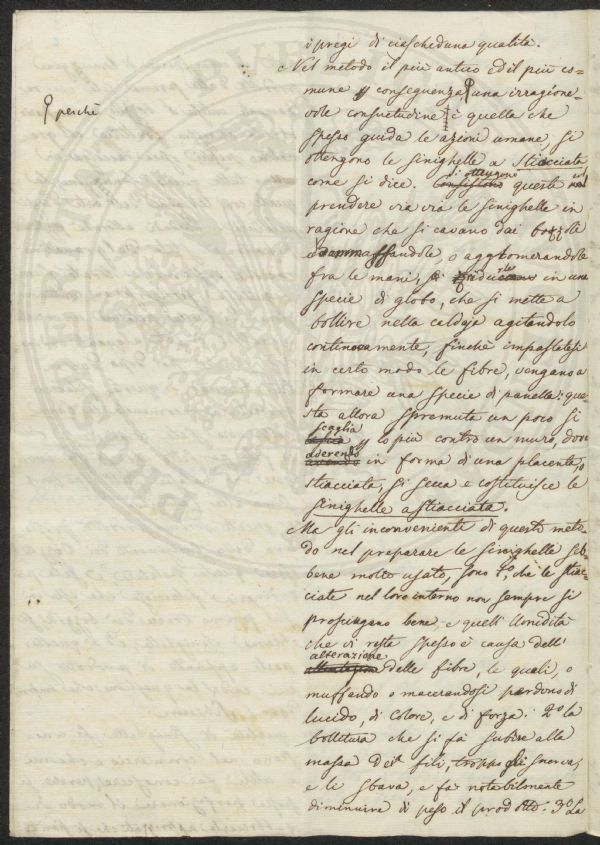 i pregi di ciascheduna qualità.
Nel metodo il più antico ed il più co=
mune, per conseguenza, una irragione=
perchè
vole consuetudine è quella che
spesso guida le azioni umane, si
ottengono le sinighelle a stiacciata
come si dice. si ottengono queste col
prendere via via le sinighelle in
ragione che si cavano dai bozzoli
ammassandole, o agglomerandole
fra le mani, in una
specie di globo, che si mette a
bollire nella caldaja agitandolo
continovamente, finchè impastatesi
in certo modo le fibre, vengano a
formare una specie di panella: que=
sta allora spremuta un poco si
scaglia per lo più contro un muro, dove
aderendo in forma di una placenta, o
stiacciata, si secca e costituisce le
sinighelle a stiacciata.
Ma gli inconvenienti di questo meto=
do nel preparare le sinighelle seb=
bene molto usato, sono 1.º, che le stiac=
ciate nel loro interno non sempre si
prosciugano bene, e quell'umidità
che vi resta spesso è causa dell'
alterazione delle fibre, le quali, o
muffando o macerandosi perdono di
lucido, di colore, e di forza: 2.º la
bollitura che si fà subire alla
massa dei fili, troppo gli snerva,
e li sbava, e fà notabilmente
diminuire di peso il prodotto: 3.º La